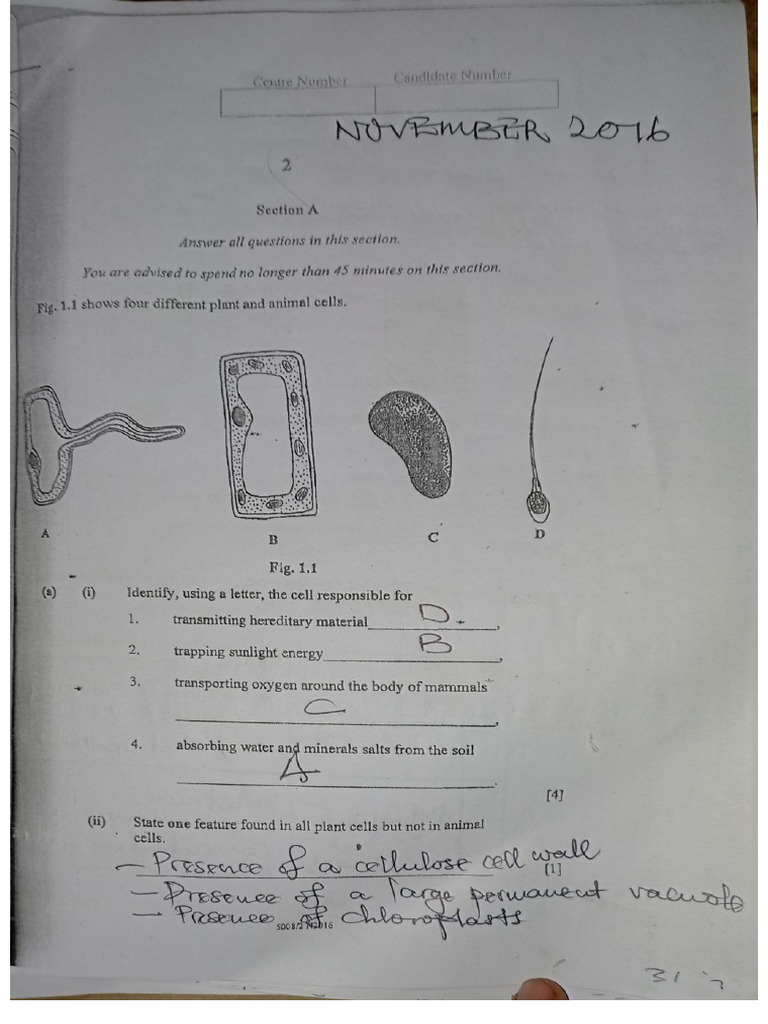 Centre Number Candidate Number
NOVEMBER 2016
2
Section A
Answer all questions in this section.
You are advised to spend no longer than 45 minutes on this section.
Fig. 1.1 shows four different plant and animal cells.
A B C D
Fig. 1.1
(a) (i) Identify, using a letter, the cell responsible for
1. transmitting hereditary material D.,
2. trapping sunlight energy B,
3. transporting oxygen around the body of mammals
C,
4. absorbing water and minerals salts from the soil
A.
[4]
(ii) State one feature found in all plant cells but not in animal
cells.
- Presence of a cellulose cell wall
[1]
- Presence of a large permanent vacuole
- Presence of chloroplasts
5008/2 N2016
31